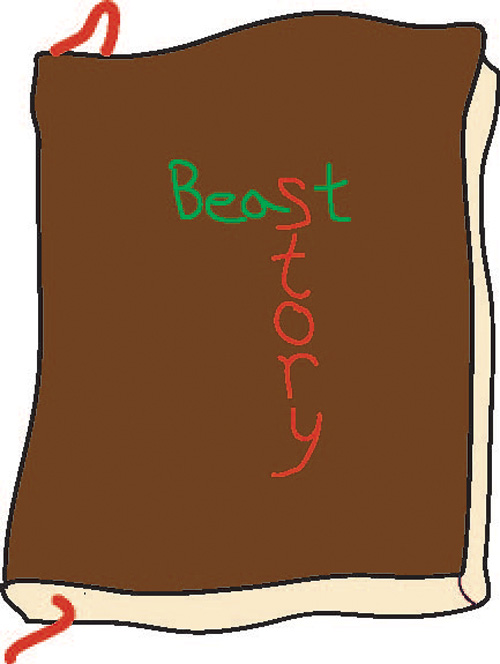 Beast
Story